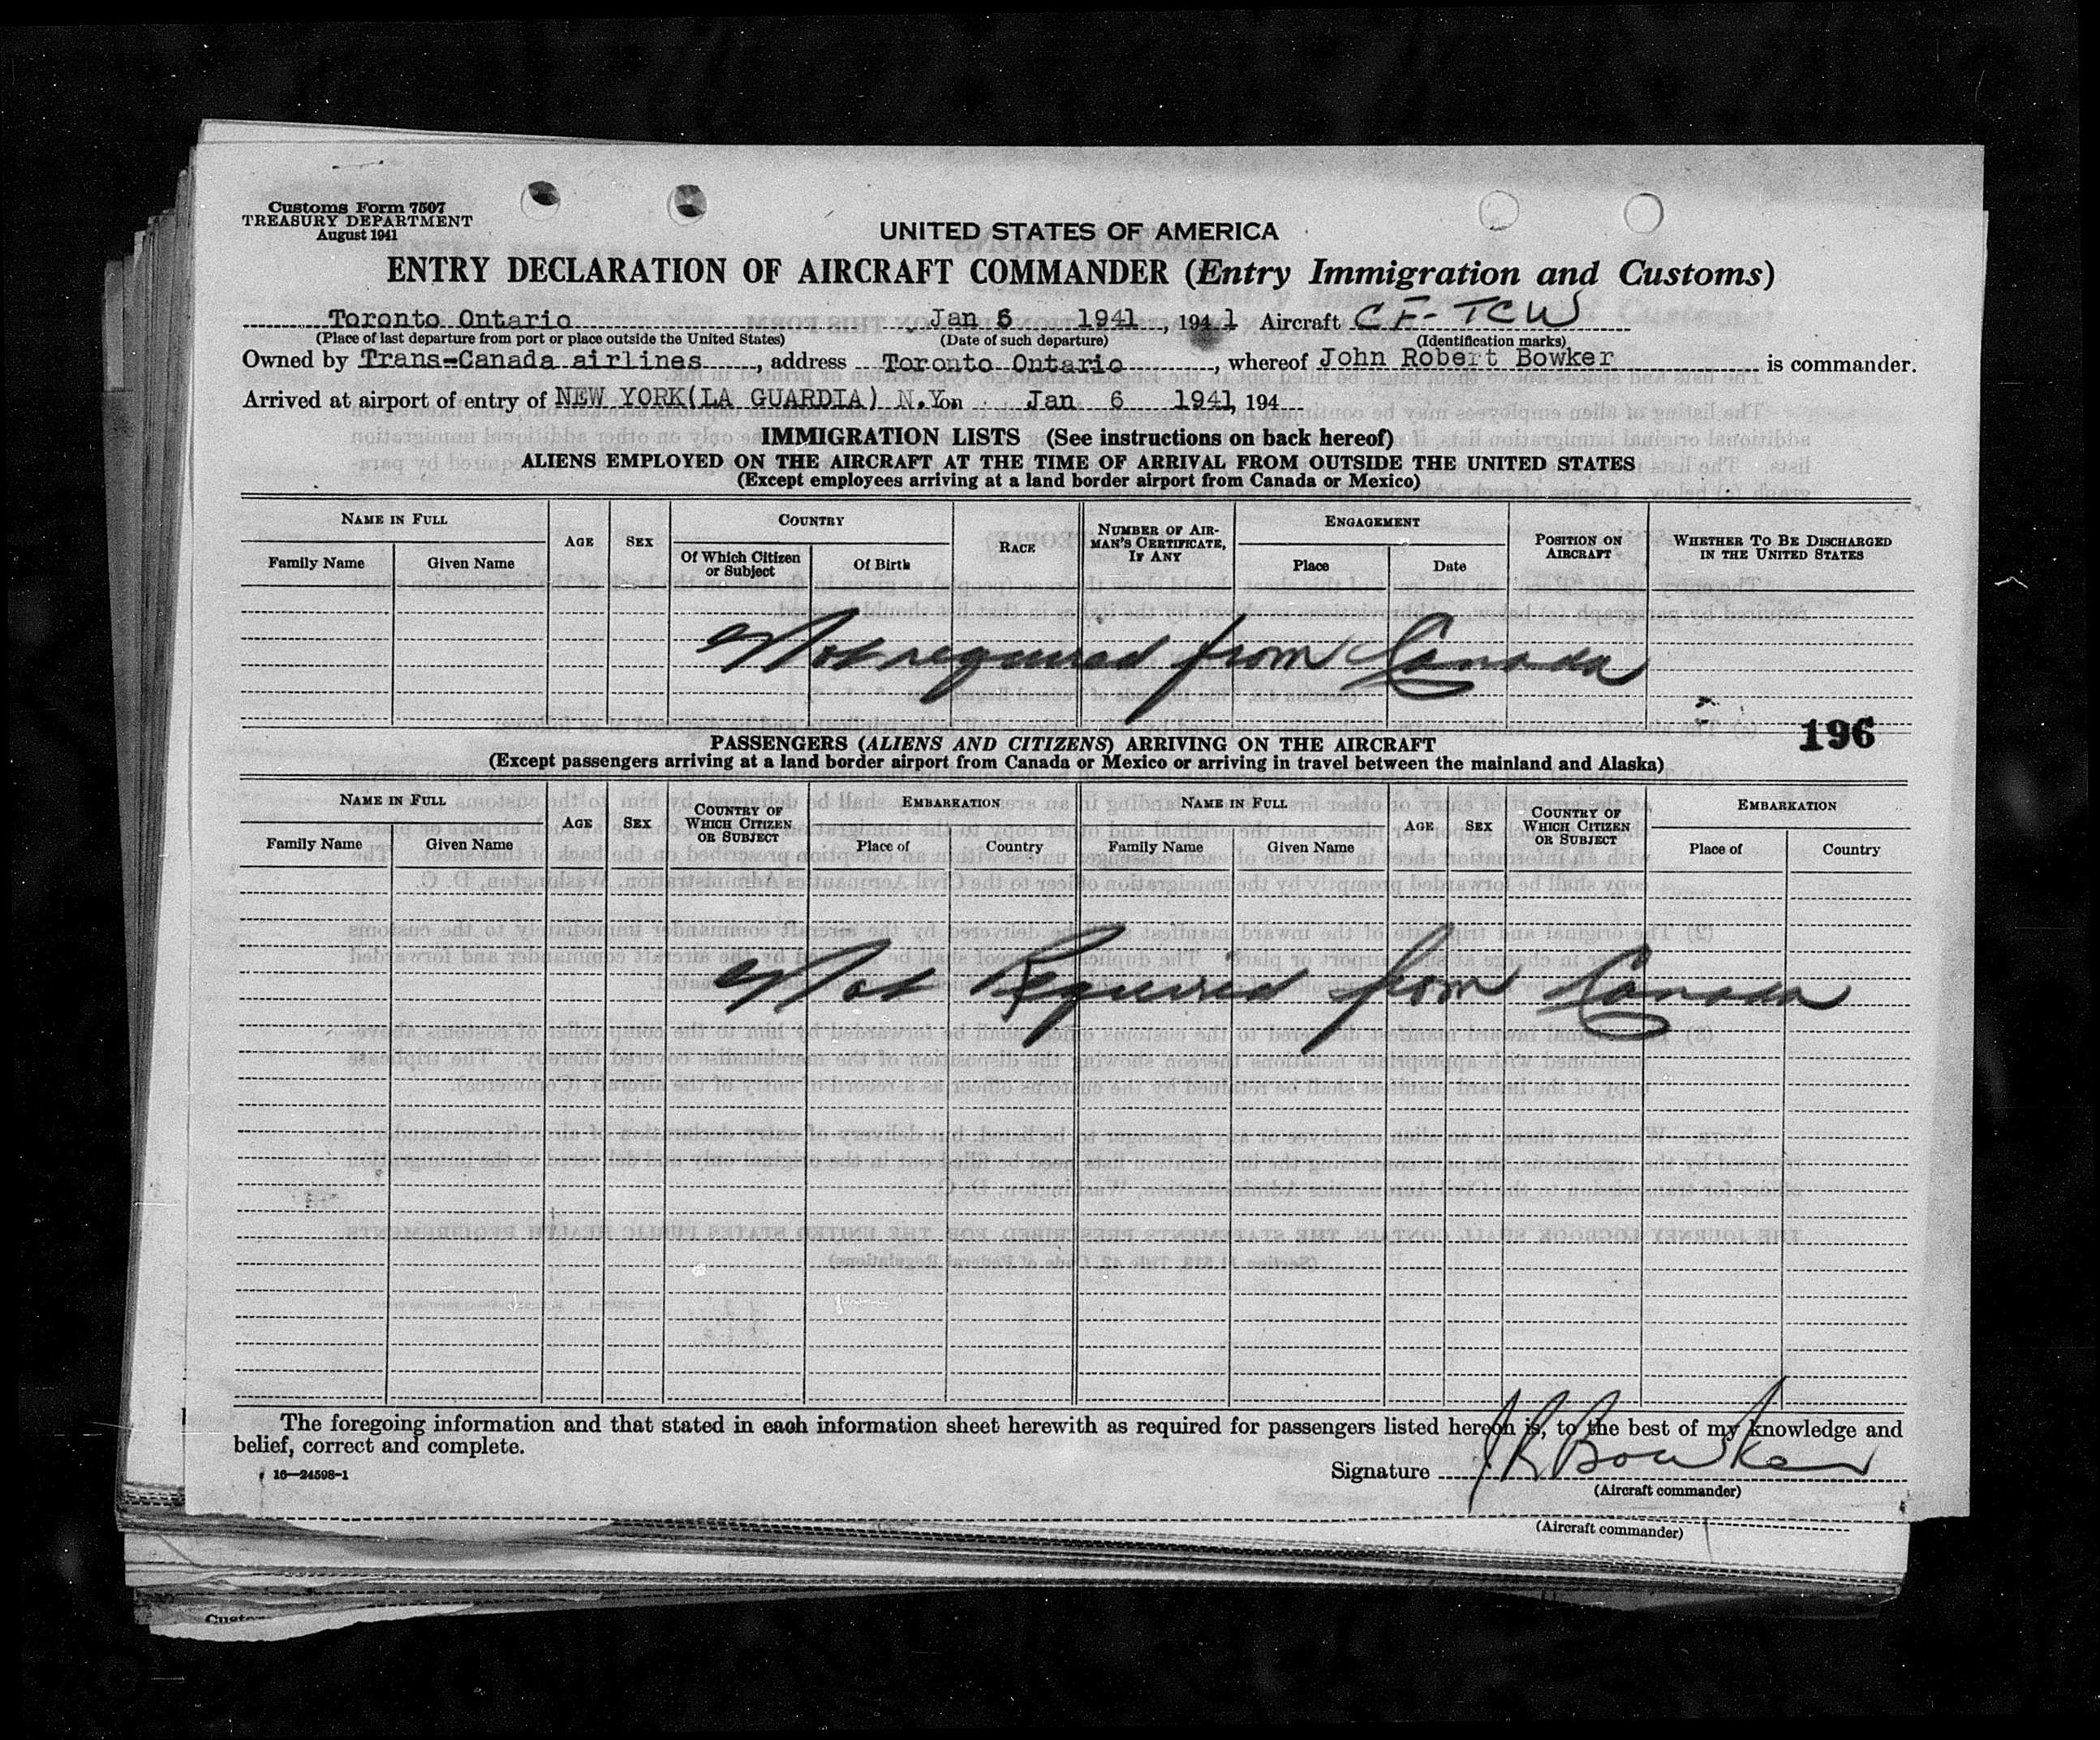 Customs Form 7507
TREASURY DEPARTMENT
August 1941
UNITED STATES OF AMERICA
ENTRY DECLARATION OF AIRCRAFT COMMANDER (Entry Immigration and Customs)
Toronto Ontario Jan 6 1941, 194 1 Aircraft CF-TCW
(Place of last departure from port or place outside the United States) (Date of such departure) (Identification marks)
Owned by Trans-Canada airlines, address Toronto Ontario, whereof John Robert Bowker is commander.
Arrived at airport of entry of NEW YORK(LA GUARDIA) N.Y. on Jan 6 1941, 194
IMMIGRATION LISTS (See instructions on back hereof)
ALIENS EMPLOYED ON THE AIRCRAFT AT THE TIME OF ARRIVAL FROM OUTSIDE THE UNITED STATES
(Except employees arriving at a land border airport from Canada or Mexico)
NAME IN FULL AGE SEX COUNTRY RACE NUMBER OF AIRMAN'S CERTIFICATE, IF ANY ENGAGEMENT POSITION ON AIRCRAFT WHETHER TO BE DISCHARGED IN THE UNITED STATES
Family Name Given Name Of Which Citizen or Subject Of Birth Place Date
Not required from Canada
196
PASSENGERS (ALIENS AND CITIZENS) ARRIVING ON THE AIRCRAFT
(Except passengers arriving at a land border airport from Canada or Mexico or arriving in travel between the mainland and Alaska)
NAME IN FULL AGE SEX COUNTRY OF WHICH CITIZEN OR SUBJECT EMBARKATION NAME IN FULL AGE SEX COUNTRY OF WHICH CITIZEN OR SUBJECT EMBARKATION
Family Name Given Name Place of Country Family Name Given Name Place of Country
Not Required from Canada
The foregoing information and that stated in each information sheet herewith as required for passengers listed hereon is, to the best of my knowledge and
belief, correct and complete.
16—24598-1
Signature J R Bowker
(Aircraft commander)
(Aircraft commander)